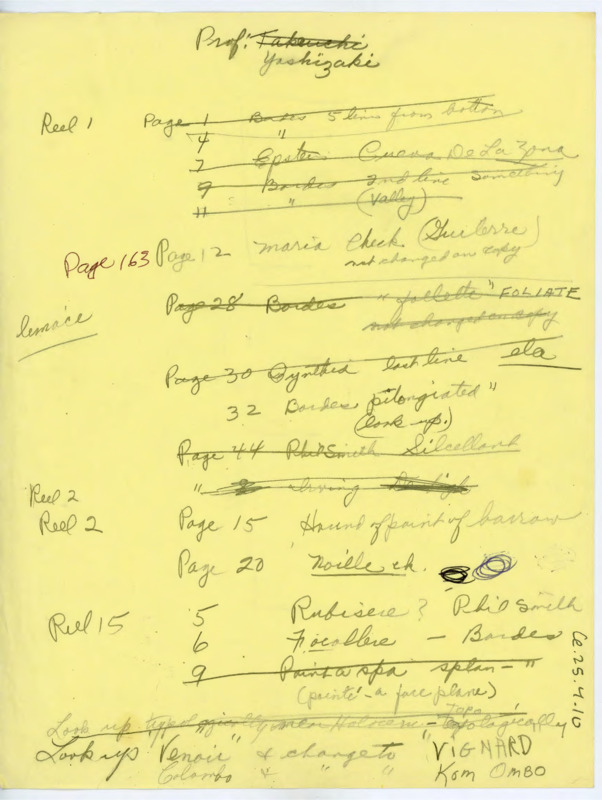 Prof. Takeuchi
Yoshizaki
Reel 1 Page 1 Bordes 5 lines from bottom
4 "
7 Epstein Cueva De La Zona
9 Bordes 2nd line something
11 " (Valley)
Page 163 Page 12 Maria Check (Guilerre)
not changed on copy
Page 28 Bordes "follette" FOLIATE
not changed on copy
limace
Page 30 Cynthia last line eta
32 Bordes "
(look up.)
Page 44 Phil Smith
" Irving
Reel 2
Reel 2 Page 15 Hound of point of barrow
Page 20 Noille ck.
Reel 15 5 Rubisere? Phil Smith
6 Focollere - Bordes
9 Point a spa splan - "
(pointé - a face plane)
Look up typologically - Topologically
Look up "Venoir" & change to "VIGNARD
Colombo & " " Kom OMBO
Ce.25.4.10